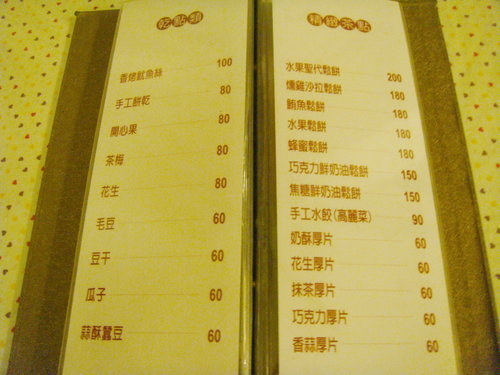 乾點類
香烤魷魚絲 100
手工餅乾 80
開心果 80
茶梅 80
花生 80
毛豆 60
豆干 60
瓜子 60
蒜酥蠶豆 60
精緻茶點
水果聖代鬆餅 200
燻雞沙拉鬆餅 180
鮪魚鬆餅 180
水果鬆餅 180
蜂蜜鬆餅 180
巧克力鮮奶油鬆餅 150
焦糖鮮奶油鬆餅 150
手工水餃(高麗菜) 90
奶酥厚片 60
花生厚片 60
抹茶厚片 60
巧克力厚片 60
香蒜厚片 60